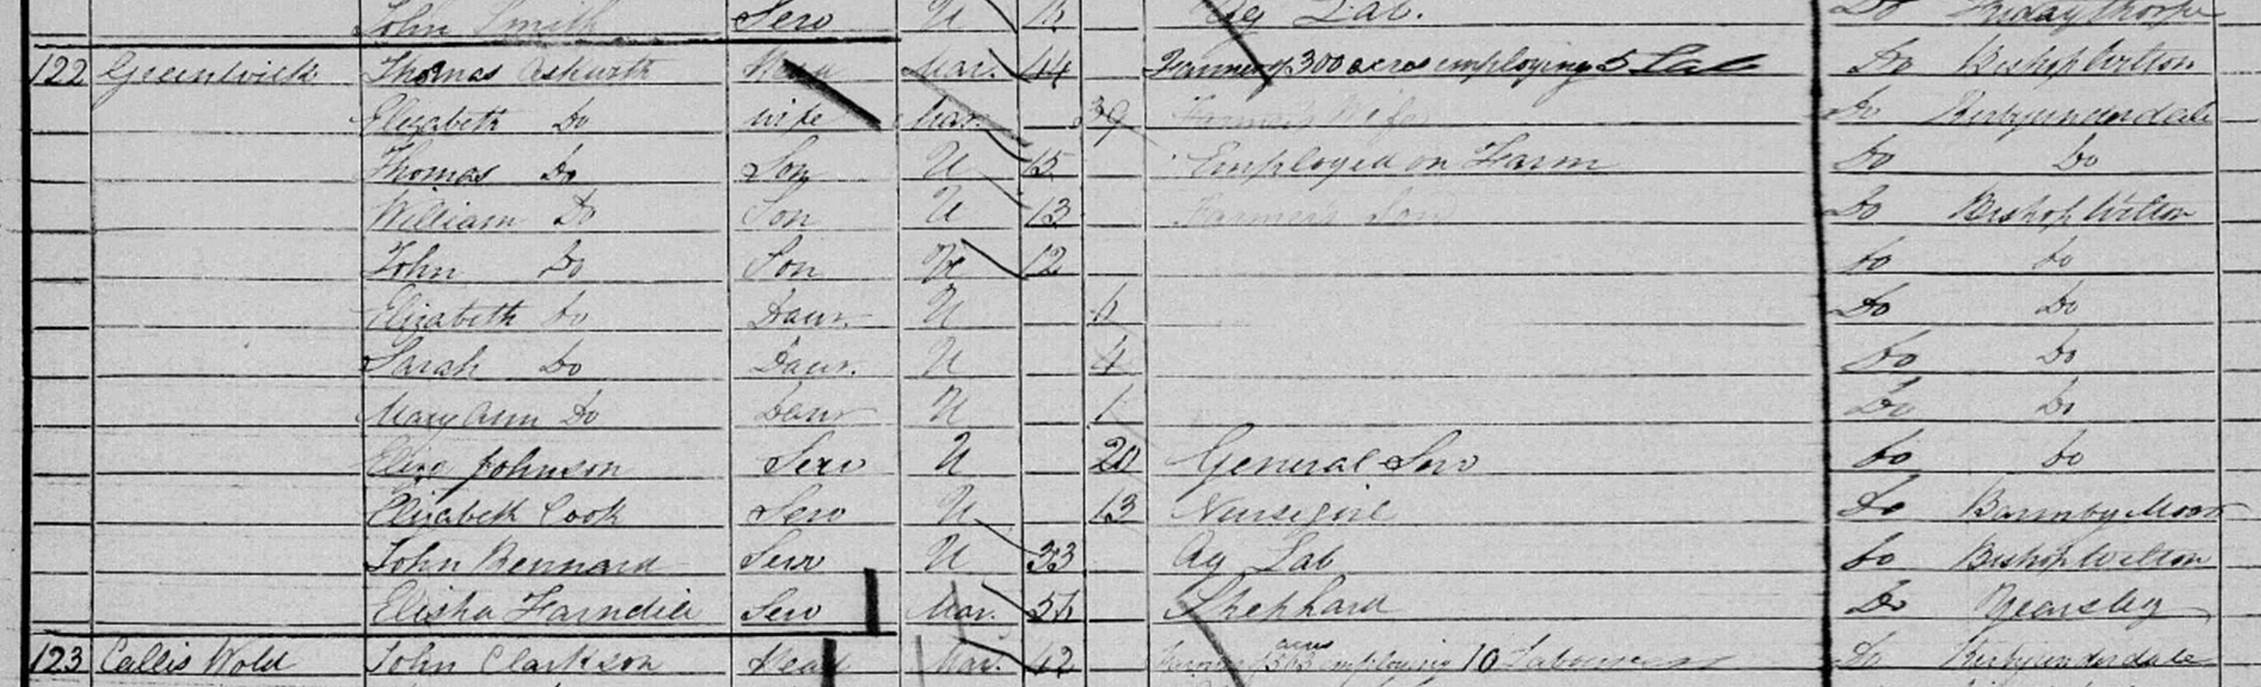 John Smith Serv U Ag Lab. Do Fridaythorpe
122 Greenwick Thomas Ashwith Head Mar. 44 Farmer of 300 acres employing 5 Lab Do Bishop Wilton
Elizabeth Do wife Mar. 39 Farmer's Wife Do Kirbyunderdale
Thomas Do Son U 15 Employed on Farm Do Do
William Do Son U 13 Farmer's Son Do Bishop Wilton
John Do Son U 12 Do Do
Elizabeth Do Daur. U 6 Do Do
Sarah Do Daur. U 4 Do Do
Mary Ann Do Daur U 1 Do Do
Eliza Johnson Serv U 20 General Serv Do Do
Elizabeth Cook Serv U 13 Nursegirl Do Barmby Moor
John Rennard Serv U 33 Ag Lab Do Bishop Wilton
Elisha Farndill Serv Mar. 56 Shephard Do Yearsley
123 Callis Wold John Clarkson Head Mar. 42 Farmer of acres employing 10 Labourers Do Kirbyunderdale